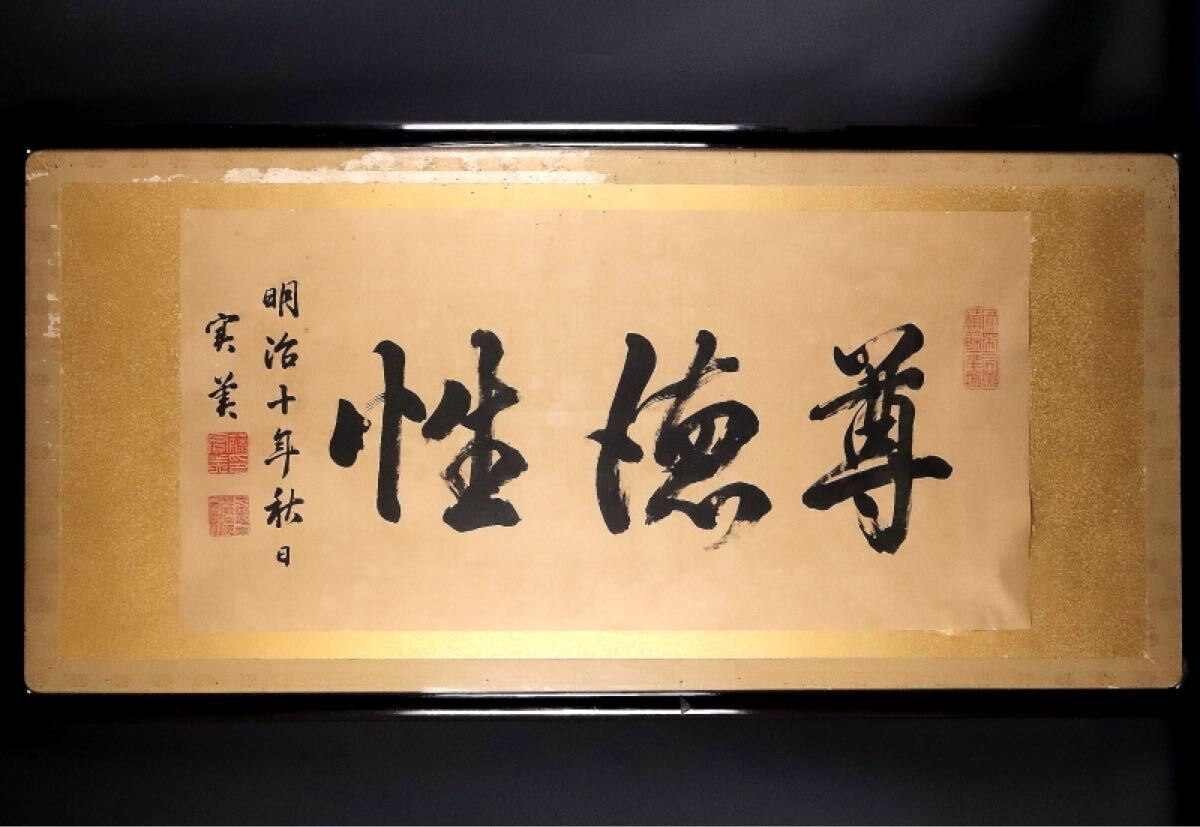 尊徳性
明治十年秋日
実美